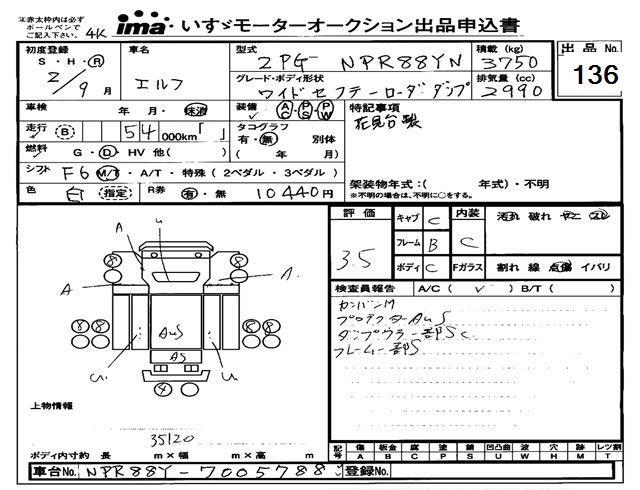 注 赤太枠内は必ず
ボールペンで
ご記入下さい。
4K
ima いすゞモーターオークション出品申込書
初度登録
S・H・R
2/9月
車名
エルフ
型式
2PG- NPR88YN
積載(kg)
3750
出品 No.
136
グレード・ボディ形状
ワイド セフティーローダダンプ
排気量(cc)
2990
車検 年 月・抹消
装備 AC・PS・PW
特記事項
花見台製
走行 B 54 000km「 」
タコグラフ
有・無 別体
( 年 月)
燃料 G・D・HV 他( )
シフト F6 M/T・A/T・特殊(2ペダル・3ペダル)
架装物年式:( 年式)・不明
※不明の場合は、不明に○をする。
色 白 指定 R券 有・無 10440円
評価 3.5
キャブ C
フレーム B
ボディ C
内装 C
Fガラス
汚れ 破れ
割れ 線 点傷 イバリ
検査員報告 A/C( ✓ ) B/T( )
カンバンM
プロテクターAUS
ダンプフラ一部S C
フレーム一部S
A
U
A
A
8
8
8
8
AUS
AS
4
上物情報
35120
ボディ内寸約 長 m×幅 m×高 m
記号 傷 板金 腐 塗 錆 凹凸曲 波 穴 跡 レツ割
A B C P S U W H M T
車台No. NPR88Y-7005788
登録No.